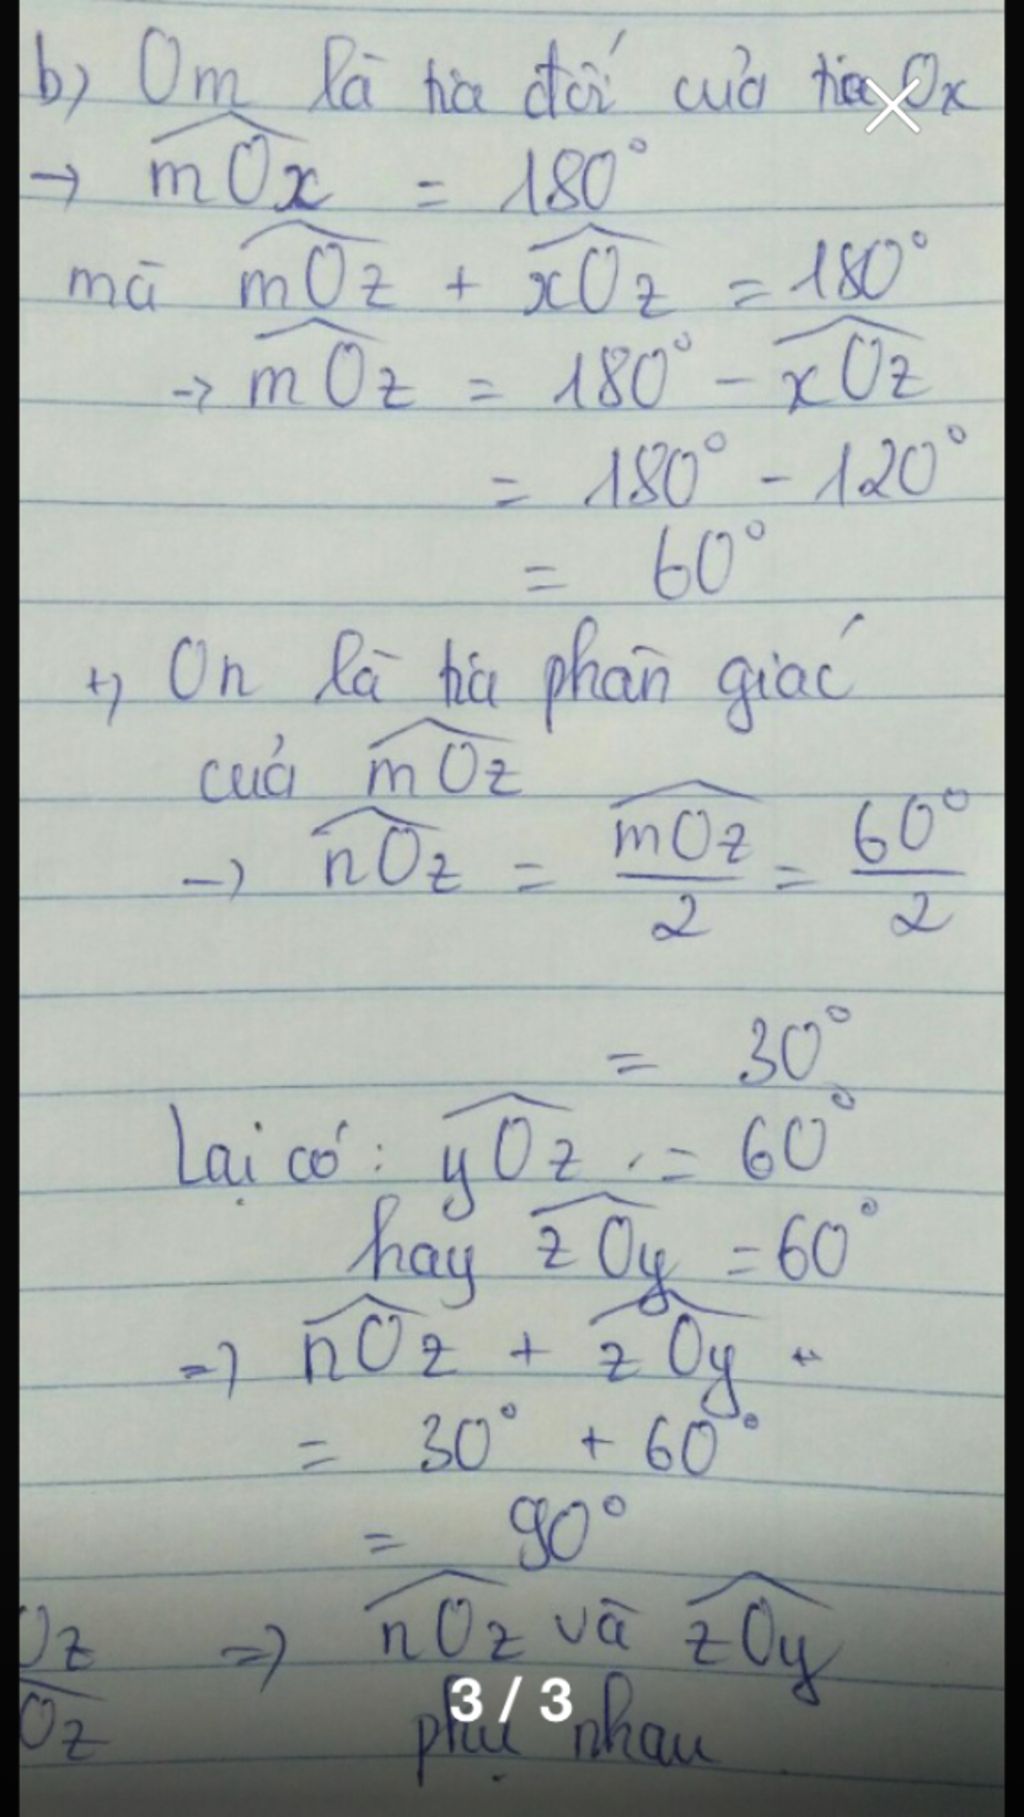 b) Om là tia đối của tia Ox
→ mOx = 180°
mà mOz + xOz = 180°
→ mOz = 180° - xOz
= 180° - 120°
= 60°
+) On là tia phân giác
của mOz
→ nOz = mOz/2 = 60°/2
= 30°
Lại có: yOz = 60°
hay zOy = 60°
=> nOz + zOy
= 30° + 60°
= 90°
Oz => nOz và zOy
Oz phụ nhau
3 / 3